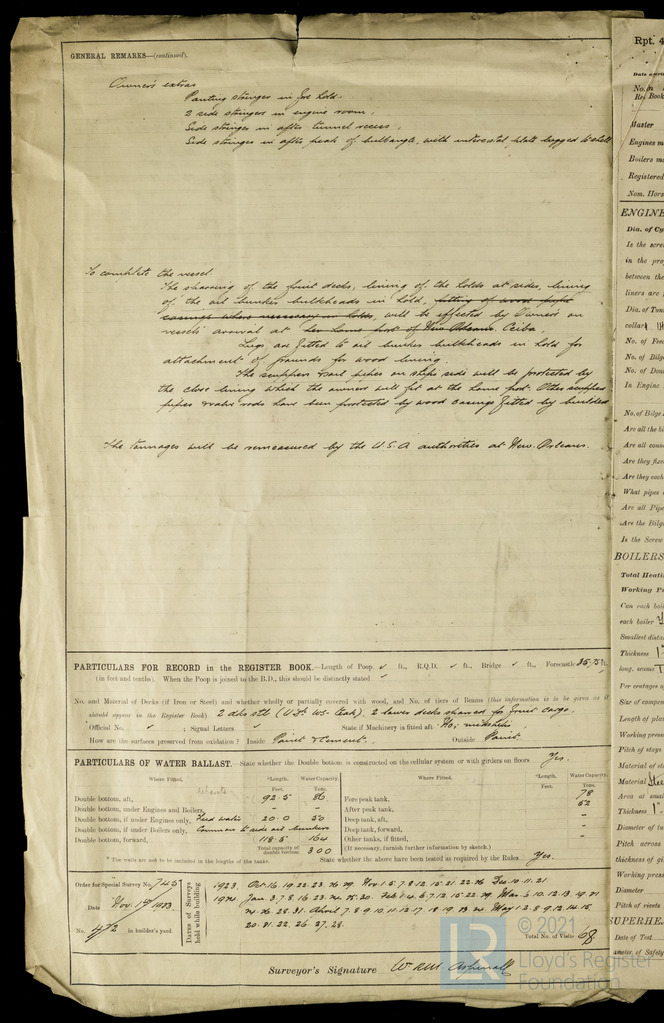 GENERAL REMARKS—(continued).
Owner's extras
Panting stringer in fore hold.
2 side stringers in engine room.
Side stringer in after tunnel recess.
Side stringer in after peak of bulb angle, with intercostal plate lugged to shell
To complete the vessel
The sparring of the fruit decks, lining of the holds at sides, lining
of the oil bunker bulkheads in hold, fitting of wood
casings where necessary in holds, will be effected by Owners on
vessels arrival at her home port of New Orleans. Ceiba.
Lugs are fitted to oil bunker bulkheads in hold for
attachment of grounds for wood lining.
The scuppers & soil pipes on ships side will be protected by
the close lining which the owners will fit at the home port. Other scupper
pipes & valve rods have been protected by wood casings fitted by builders
The tonnages will be remeasured by the U.S.A authorities at New Orleans.
PARTICULARS FOR RECORD in the REGISTER BOOK.—Length of Poop ✓ ft., R.Q.D. ✓ ft., Bridge ✓ ft., Forecastle 35.75 ft.
(in feet and tenths). When the Poop is joined to the B.D., this should be distinctly stated ✓
No. and Material of Decks (if Iron or Steel) and whether wholly or partially covered with wood, and No. of tiers of Beams (this information is to be given as it
should appear in the Register Book) 2 dks stl 2 lower decks sparred for fruit cargo.
Official No. ✓ ; Signal Letters ✓ State if Machinery is fitted aft No; midships
How are the surfaces preserved from oxidation? Inside Paint & Cement. Outside Paint
PARTICULARS OF WATER BALLAST.—State whether the Double bottom is constructed on the cellular system or with girders on floors Yes.
Where Fitted. *Length. Water Capacity. Where Fitted. *Length. Water Capacity.
Feet. Tons. Feet. Tons.
Double bottom, aft, 92.5 86 Fore peak tank, 78
Double bottom, under Engines and Boilers, - - After peak tank, 52
Double bottom, if under Engines only, Feed water 20.0 50 Deep tank, aft, -
Double bottom, if under Boilers only, Common to side oil bunkers Deep tank, forward, -
Double bottom, forward, 118.5 164 Other tanks, if fitted, -
Total capacity of double bottom 300 (If necessary, furnish further information by sketch.)
* The wells are not to be included in the lengths of the tanks. State whether the above have been tested as required by the Rules Yes.
Order for Special Survey No. 745
Date Nov. 1st 1923
No. 472 in builder's yard.
Dates of Surveys held while building
1923. Oct 16. 19. 22. 23. 26. 29. Nov 1. 5. 7. 8. 12. 15. 21. 22. 26 Dec. 10. 11. 21.
1924. Jan 3. 7. 8. 16. 23. 24. 25. 30. Feb 1. 4. 6. 7. 12. 15. 22. 29. Mar 3. 10. 12. 13. 19. 21
24. 26. 28. 31. April 7. 8. 9. 10. 11. 12. 17. 18. 19. 23. 24. May 1. 2. 8. 9. 12. 14. 15.
20. 21. 22. 26. 27. 28.
Total No. of Visits 68
Surveyor's Signature Wm Aspinall
© 2021
Lloyd's Register
Foundation
LR
Rpt. 4
No. in
Reg. Book
Master
Engines m
Boilers m
Registered
Nom. Hors
ENGINE
Dia. of Cy
Is the scre
in the pro
between the
liners are
Dia. of Tun
collars
No. of Fee
No. of Bilg
No. of Don
In Engine
No. of Bilge
Are all the b
Are all conn
Are they fixe
Are they each
What pipes
Are all Pipe
Are the Bilg
Is the Screw
BOILERS
Total Heati
Working Pr
Can each boil
each boiler
Smallest dista
Thickness
long. seams
Per centage o
Size of compen
Length of plai
Working press
Pitch of stays
Material of st
Material Stee
Area at smal
Thickness
Diameter of tu
Pitch across
thickness of gi
Working press
Diameter
Pitch of rivets
SUPERHE
Date of Test
ameter of Safety